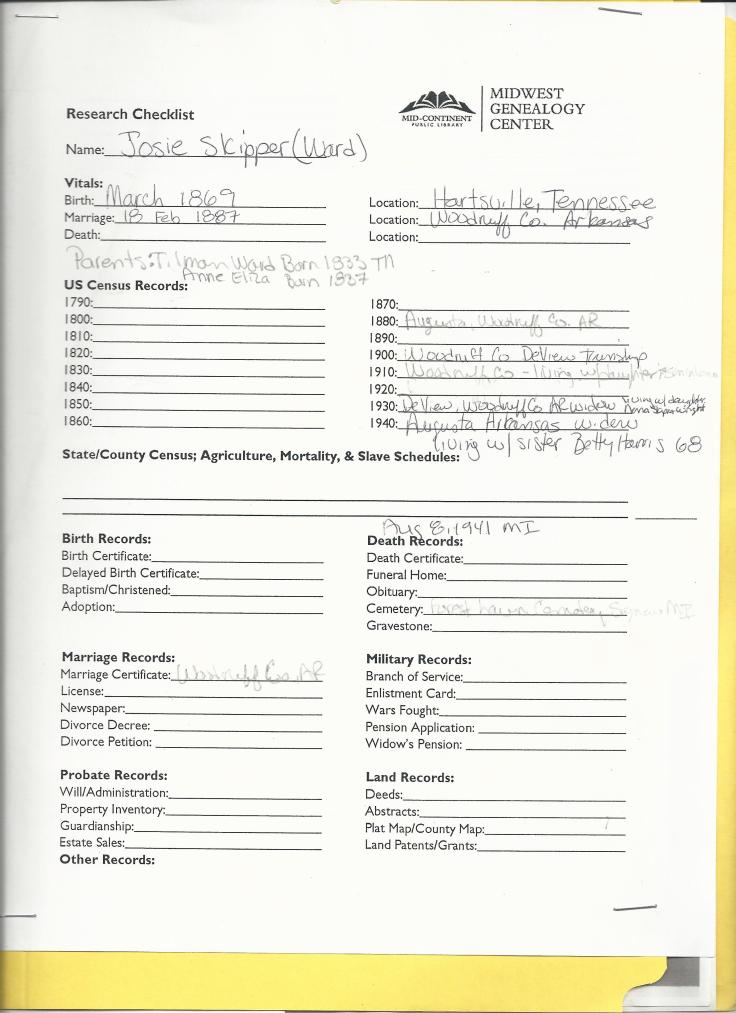 MIDWEST
GENEALOGY
CENTER
MID-CONTINENT
PUBLIC LIBRARY
Research Checklist
Name: Josie Skipper (Ward)
Vitals:
Birth: March 1869 Location: Hartsville, Tennessee
Marriage: 18 Feb 1887 Location: Woodruff Co. Arkansas
Death: Location:
Parents: Tilman Ward Born 1833 TN
Anne Eliza Born 1837
US Census Records:
1790: 1870:
1800: 1880: Augusta, Woodruff Co. AR
1810: 1890:
1820: 1900: Woodruff Co DeView Township
1830: 1910: Woodruff Co - living w/daughter
1840: 1920:
1850: 1930: DeView, Woodruff Co AR widow living w/ daughter
1860: 1940: Augusta Arkansas widow
living w/ sister Betty Harris 68
State/County Census; Agriculture, Mortality, & Slave Schedules:
Aug 8, 1941 MI
Birth Records: Death Records:
Birth Certificate: Death Certificate:
Delayed Birth Certificate: Funeral Home:
Baptism/Christened: Obituary:
Adoption: Cemetery: Forest Lawn Cemetery, MI
Gravestone:
Marriage Records: Military Records:
Marriage Certificate: Woodruff Co, AR Branch of Service:
License: Enlistment Card:
Newspaper: Wars Fought:
Divorce Decree: Pension Application:
Divorce Petition: Widow's Pension:
Probate Records: Land Records:
Will/Administration: Deeds:
Property Inventory: Abstracts:
Guardianship: Plat Map/County Map:
Estate Sales: Land Patents/Grants:
Other Records: